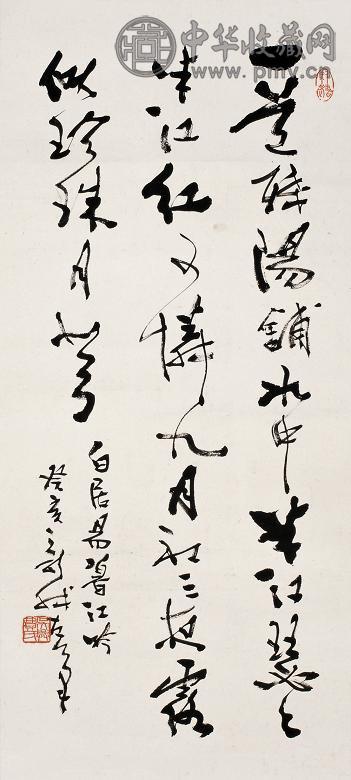 中华收藏网
www.pmv.cn
一道残陽鋪水中半江瑟々
半江红可憐九月初三夜露
似珍珠月似弓
白居易暮江吟
癸亥新我左笔